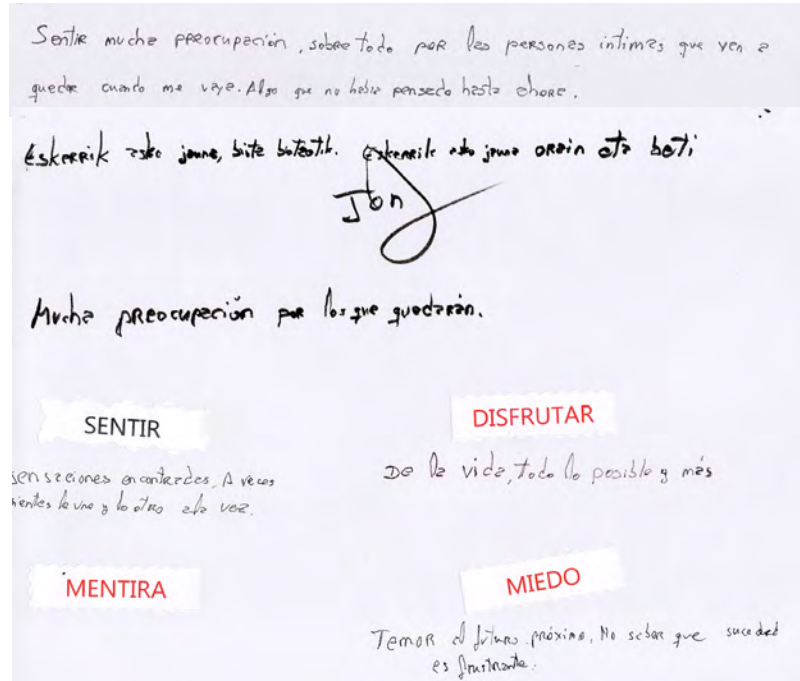 Sentir mucha preocupación, sobre todo por las personas intimas que van a
quedar cuando me vaya. Algo que no habia pensado hasta ahora.
Eskerrik asko jauna, bihotzetik. Eskerrik asko jauna orain eta beti
Jon
Mucha preocupación por los que quedarán.
SENTIR
DISFRUTAR
sensaciones encontradas, A veces
sientes lo uno y lo otro a la vez.
De la vida, todo lo posible y más
MENTIRA
MIEDO
Temor al futuro próximo, No saber que sucederá
es frustrante.